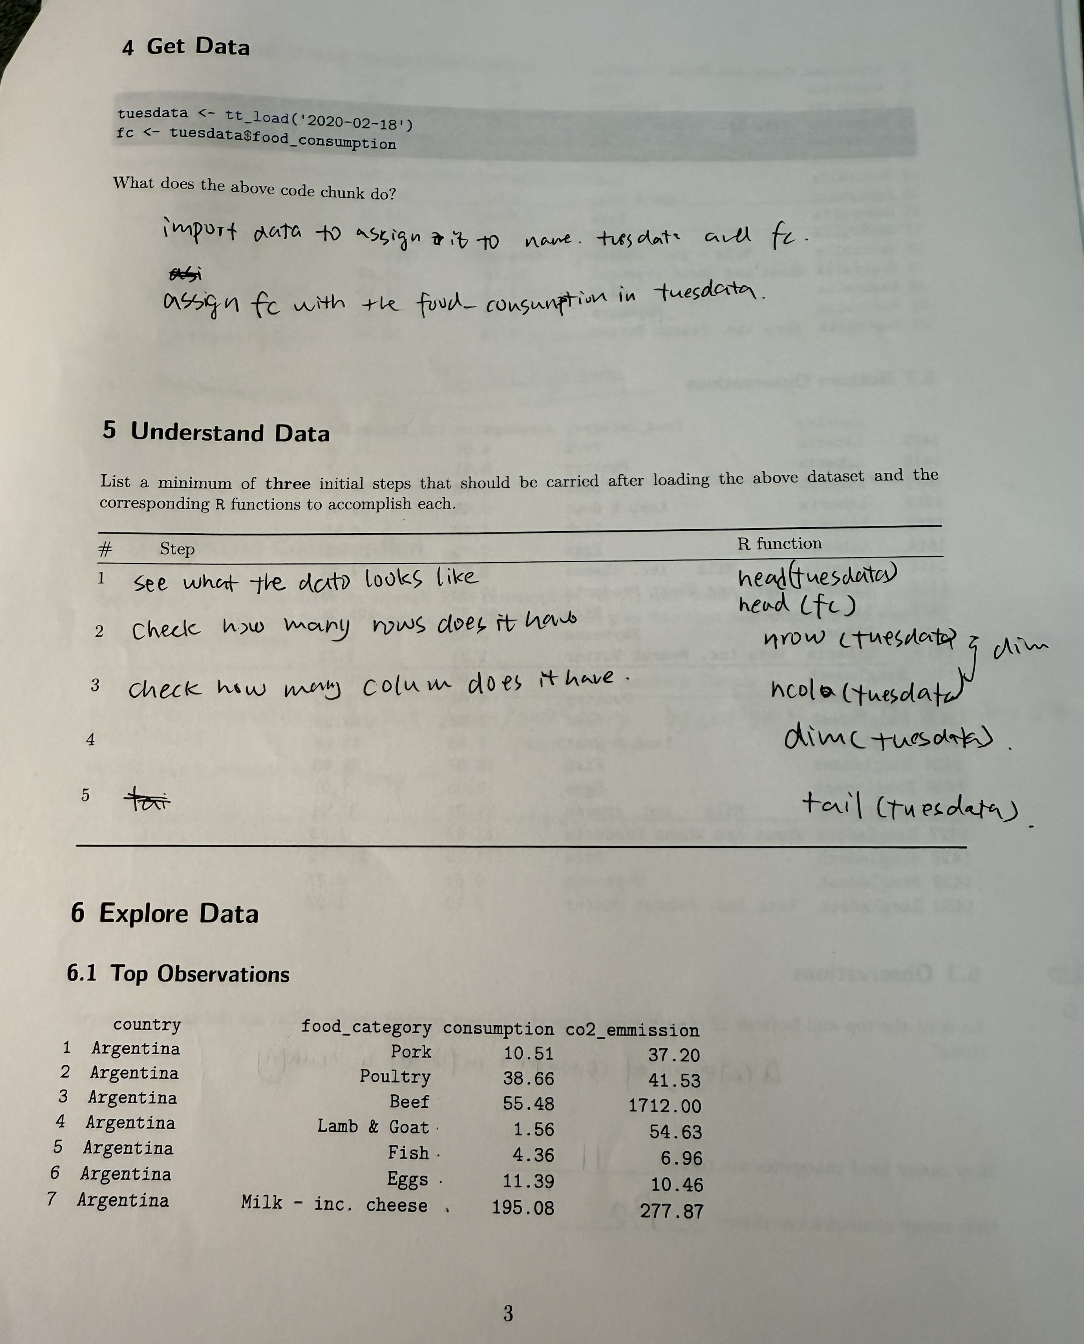 4 Get Data
tuesdata <- tt_load('2020-02-18')
fc <- tuesdata$food_consumption
What does the above code chunk do?
import data to assign it to name. tuesdata and fc.
assign fc with the food_consumption in tuesdata.
5 Understand Data
List a minimum of three initial steps that should be carried after loading the above dataset and the
corresponding R functions to accomplish each.
# Step R function
1 see what the data looks like head(tuesdata)
head (fc)
2 Check how many rows does it have nrow (tuesdata) } dim
3 check how many colum does it have. ncol (tuesdata)
4 dim(tuesdata).
5 tai tail (tuesdata).
6 Explore Data
6.1 Top Observations
country food_category consumption co2_emmission
1 Argentina Pork 10.51 37.20
2 Argentina Poultry 38.66 41.53
3 Argentina Beef 55.48 1712.00
4 Argentina Lamb & Goat 1.56 54.63
5 Argentina Fish 4.36 6.96
6 Argentina Eggs 11.39 10.46
7 Argentina Milk - inc. cheese 195.08 277.87
3